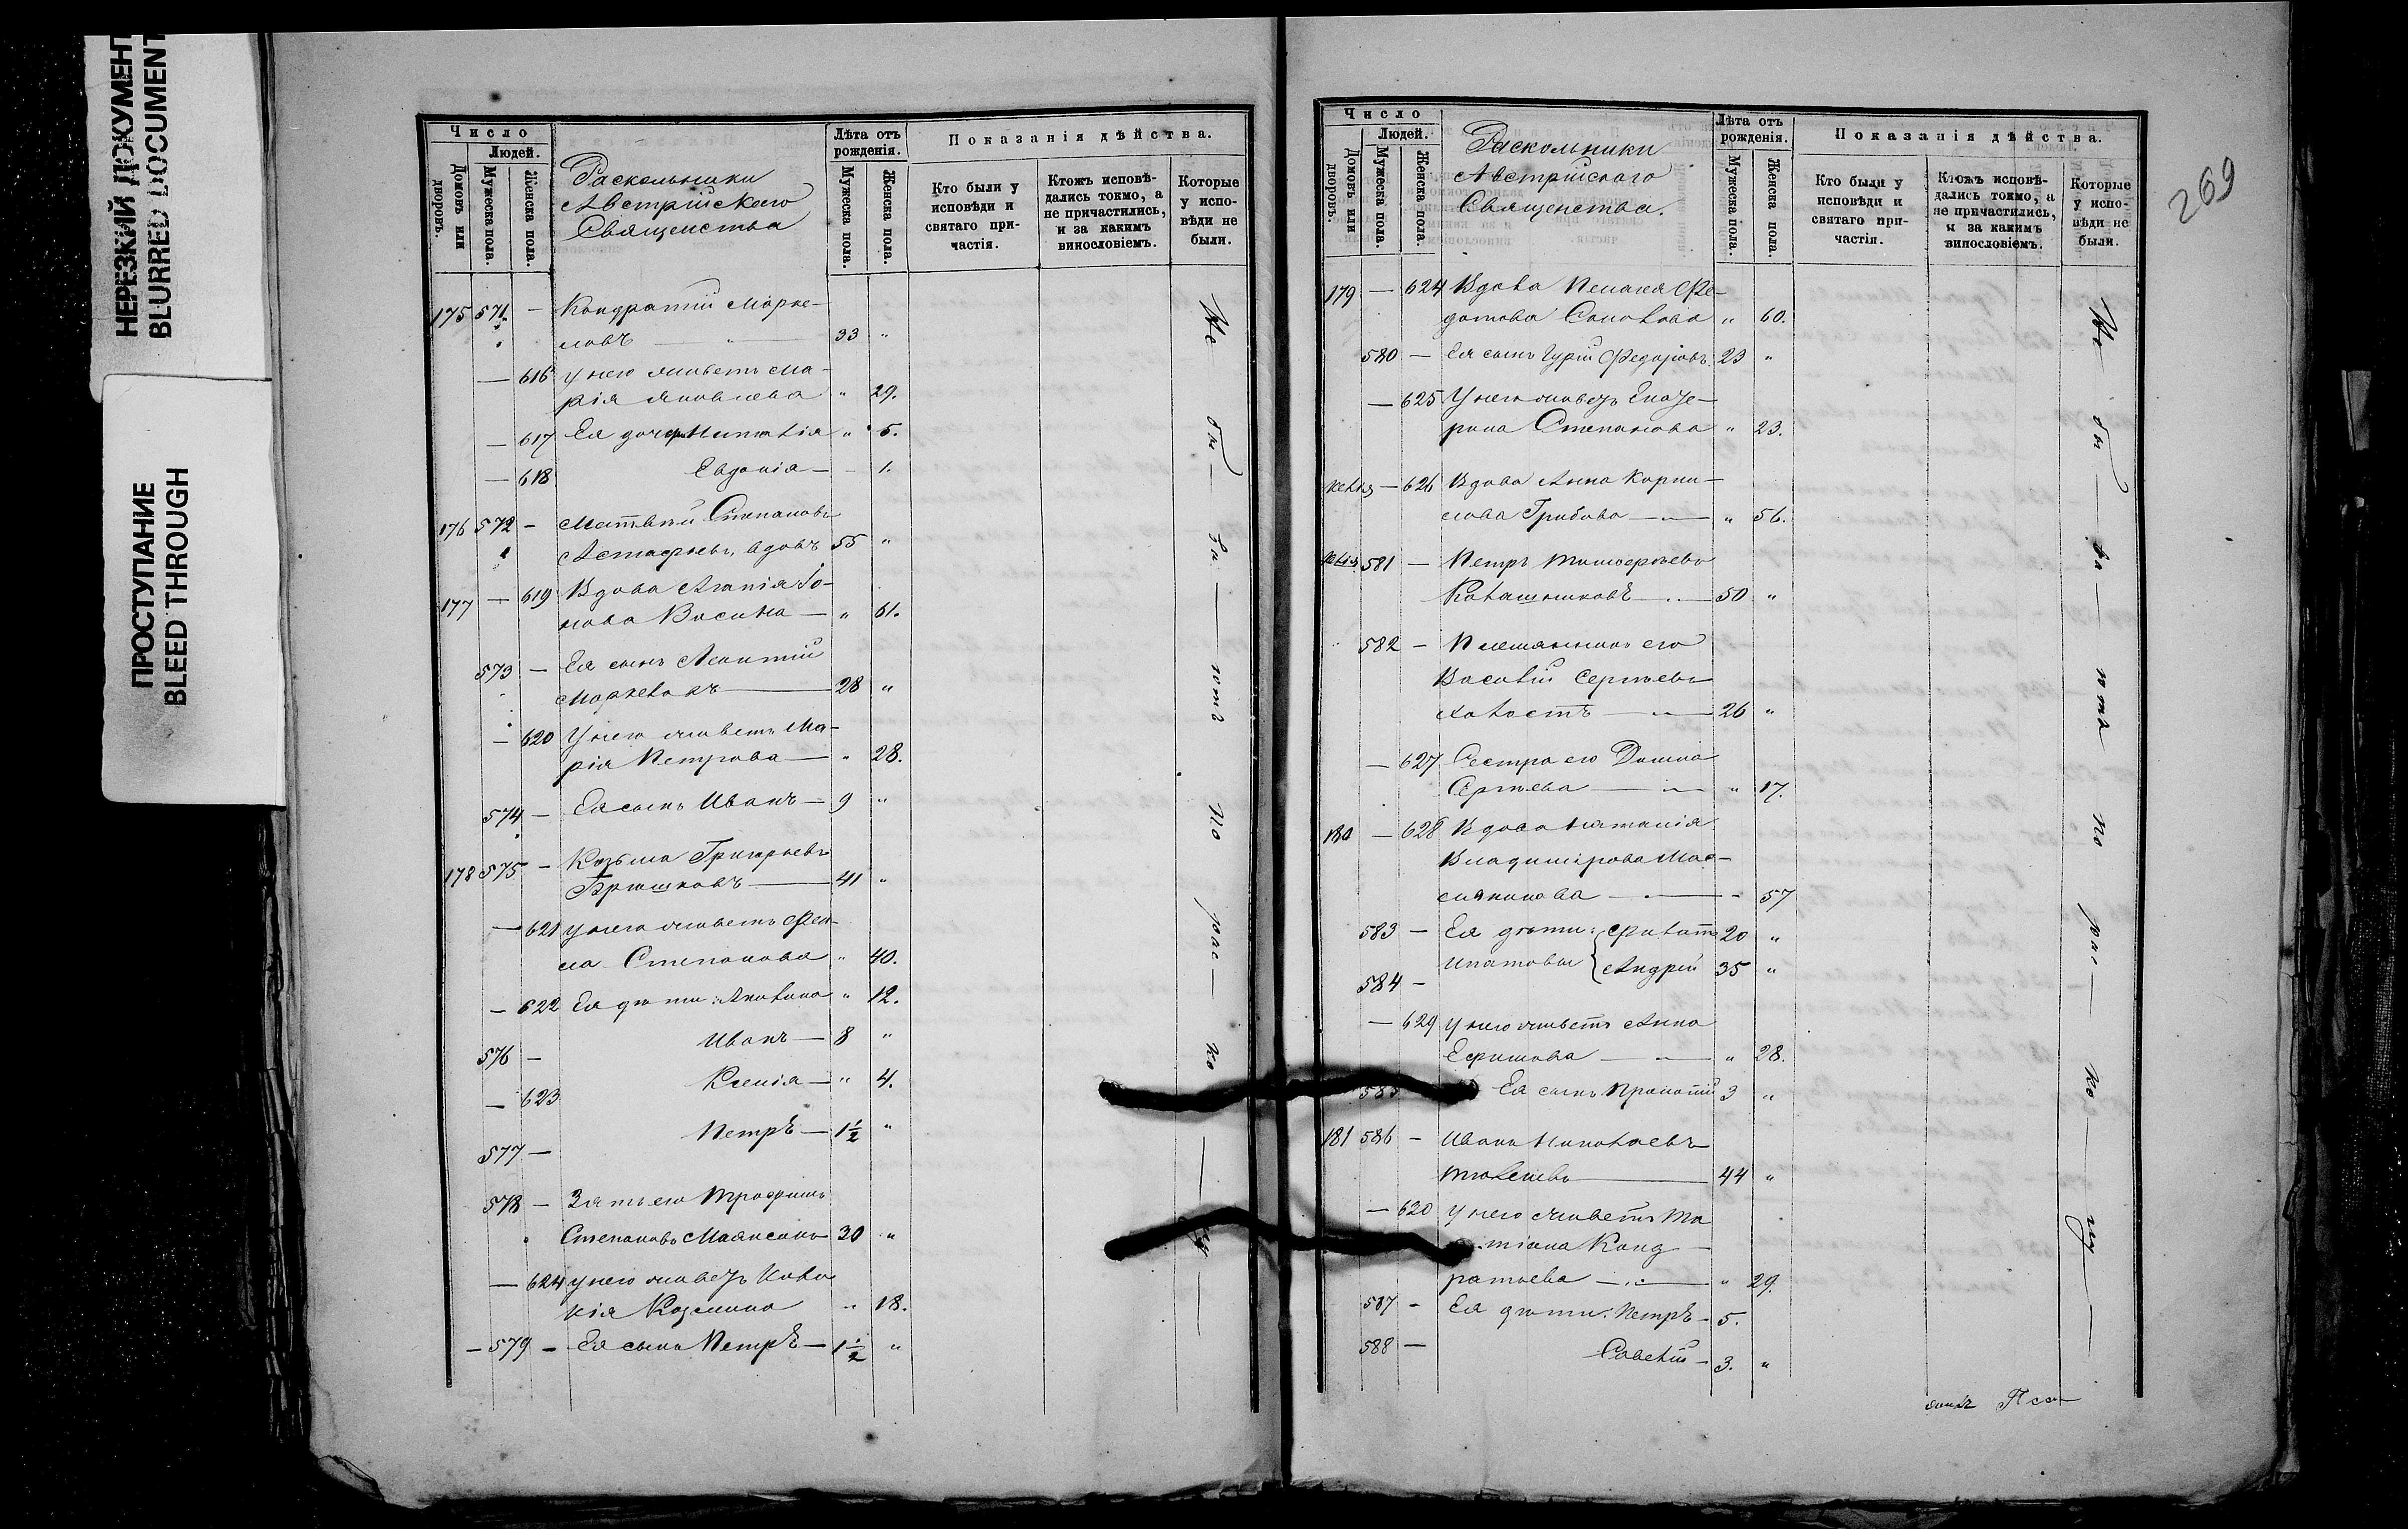 НЕРЕЗКИЙ ДОКУМЕНТ
BLURRED DOCUMENT
ПРОСТУПАНИЕ
BLEED THROUGH
Число
Людей.
Домовъ или дворовъ.
Мужеска пола.
Женска пола.
Раскольники
Австрійскаго
Священства
Лѣта отъ рожденія.
Мужеска пола.
Женска пола.
Показанія дѣйства.
Кто были у исповѣди и святаго причастія.
Ктожъ исповѣдались токмо, а не причастились, и за какимъ винословіемъ.
Которые у исповѣди не были.
175 571 — Кондратій Марке-
ловъ — 33 "
— 616 у него живетъ Ма-
рія Яковлева " 29.
— 617 Ея дочери Наталія " 5.
— 618 Евдокія — 1.
176 572 — Матвѣй Степановъ
Астафьевъ, вдовъ 55 "
177 — 619 Вдова Агапія Іо-
нова — " 61.
573 — Ея сынъ Леонтій
— 28 "
— 620 У него живетъ Ма-
рія Петрова — " 28.
574 — Ея сынъ Иванъ — 9 "
178 575 — Козьма Григорьевъ
Брюшковъ — 41 "
— 621 у него живетъ Фек-
ла Степанова " 40.
— 622 Ея дѣти: Акилина " 12.
576 — Иванъ — 8 "
— 623 Ксенія — " 4.
577 — Петръ — 1½ "
578 — Зять его Трофимъ
Степановъ 30 "
— 624 у него живетъ
Козмина " 18.
— 579 — Ея сынъ Петръ — 1½ "
Не бы — ли — ютъ по рас — ко — лу —
269
Число
Людей.
Домовъ или дворовъ.
Мужеска пола.
Женска пола.
Раскольники
Австрійскаго
Священства.
Лѣта отъ рожденія.
Мужеска пола.
Женска пола.
Показанія дѣйства.
Кто были у исповѣди и святаго причастія.
Ктожъ исповѣдались токмо, а не причастились, и за какимъ винословіемъ.
Которые у исповѣди не были.
179 — 624 Вдова Пелагея Фе-
дотова " 60.
580 — Ея сынъ Гурій Федоровъ 23 "
— 625 У него живетъ Екате-
рина Степанова " 23.
— 626 Вдова Анна Корни-
лова Грибова — " 56.
581 — Петръ Тимофеевъ
— 50 "
582 — Племянникъ его
Василій Сергѣевъ
— 26 "
— 627 Сестра его Домна
Сергѣева — " 17.
180 — 628 Вдова Наталія
Владимірова Мас-
— 57
583 — Ея дѣти: 20 "
584 — Ипатовы Андрей 35 "
— 629 у него живетъ Анна
Ефимова — " 28.
585 Ея сынъ 3 "
181 586 — Иванъ Николаевъ
— 44 "
— 620 у него живетъ Та
тіана Конд —
ратьева — " 29.
587 — Ея дѣти: Петръ — 5.
588 — Савелій — 3. "